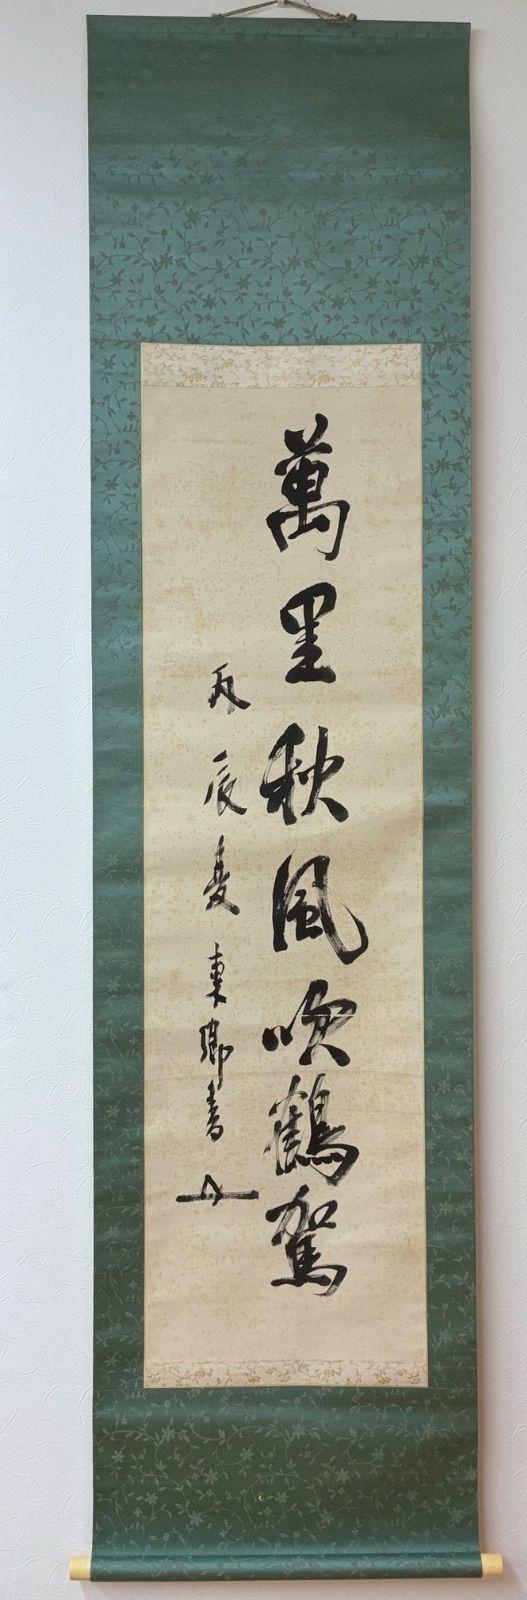 萬里秋風吹鶴駕
丙辰夏東鄉書